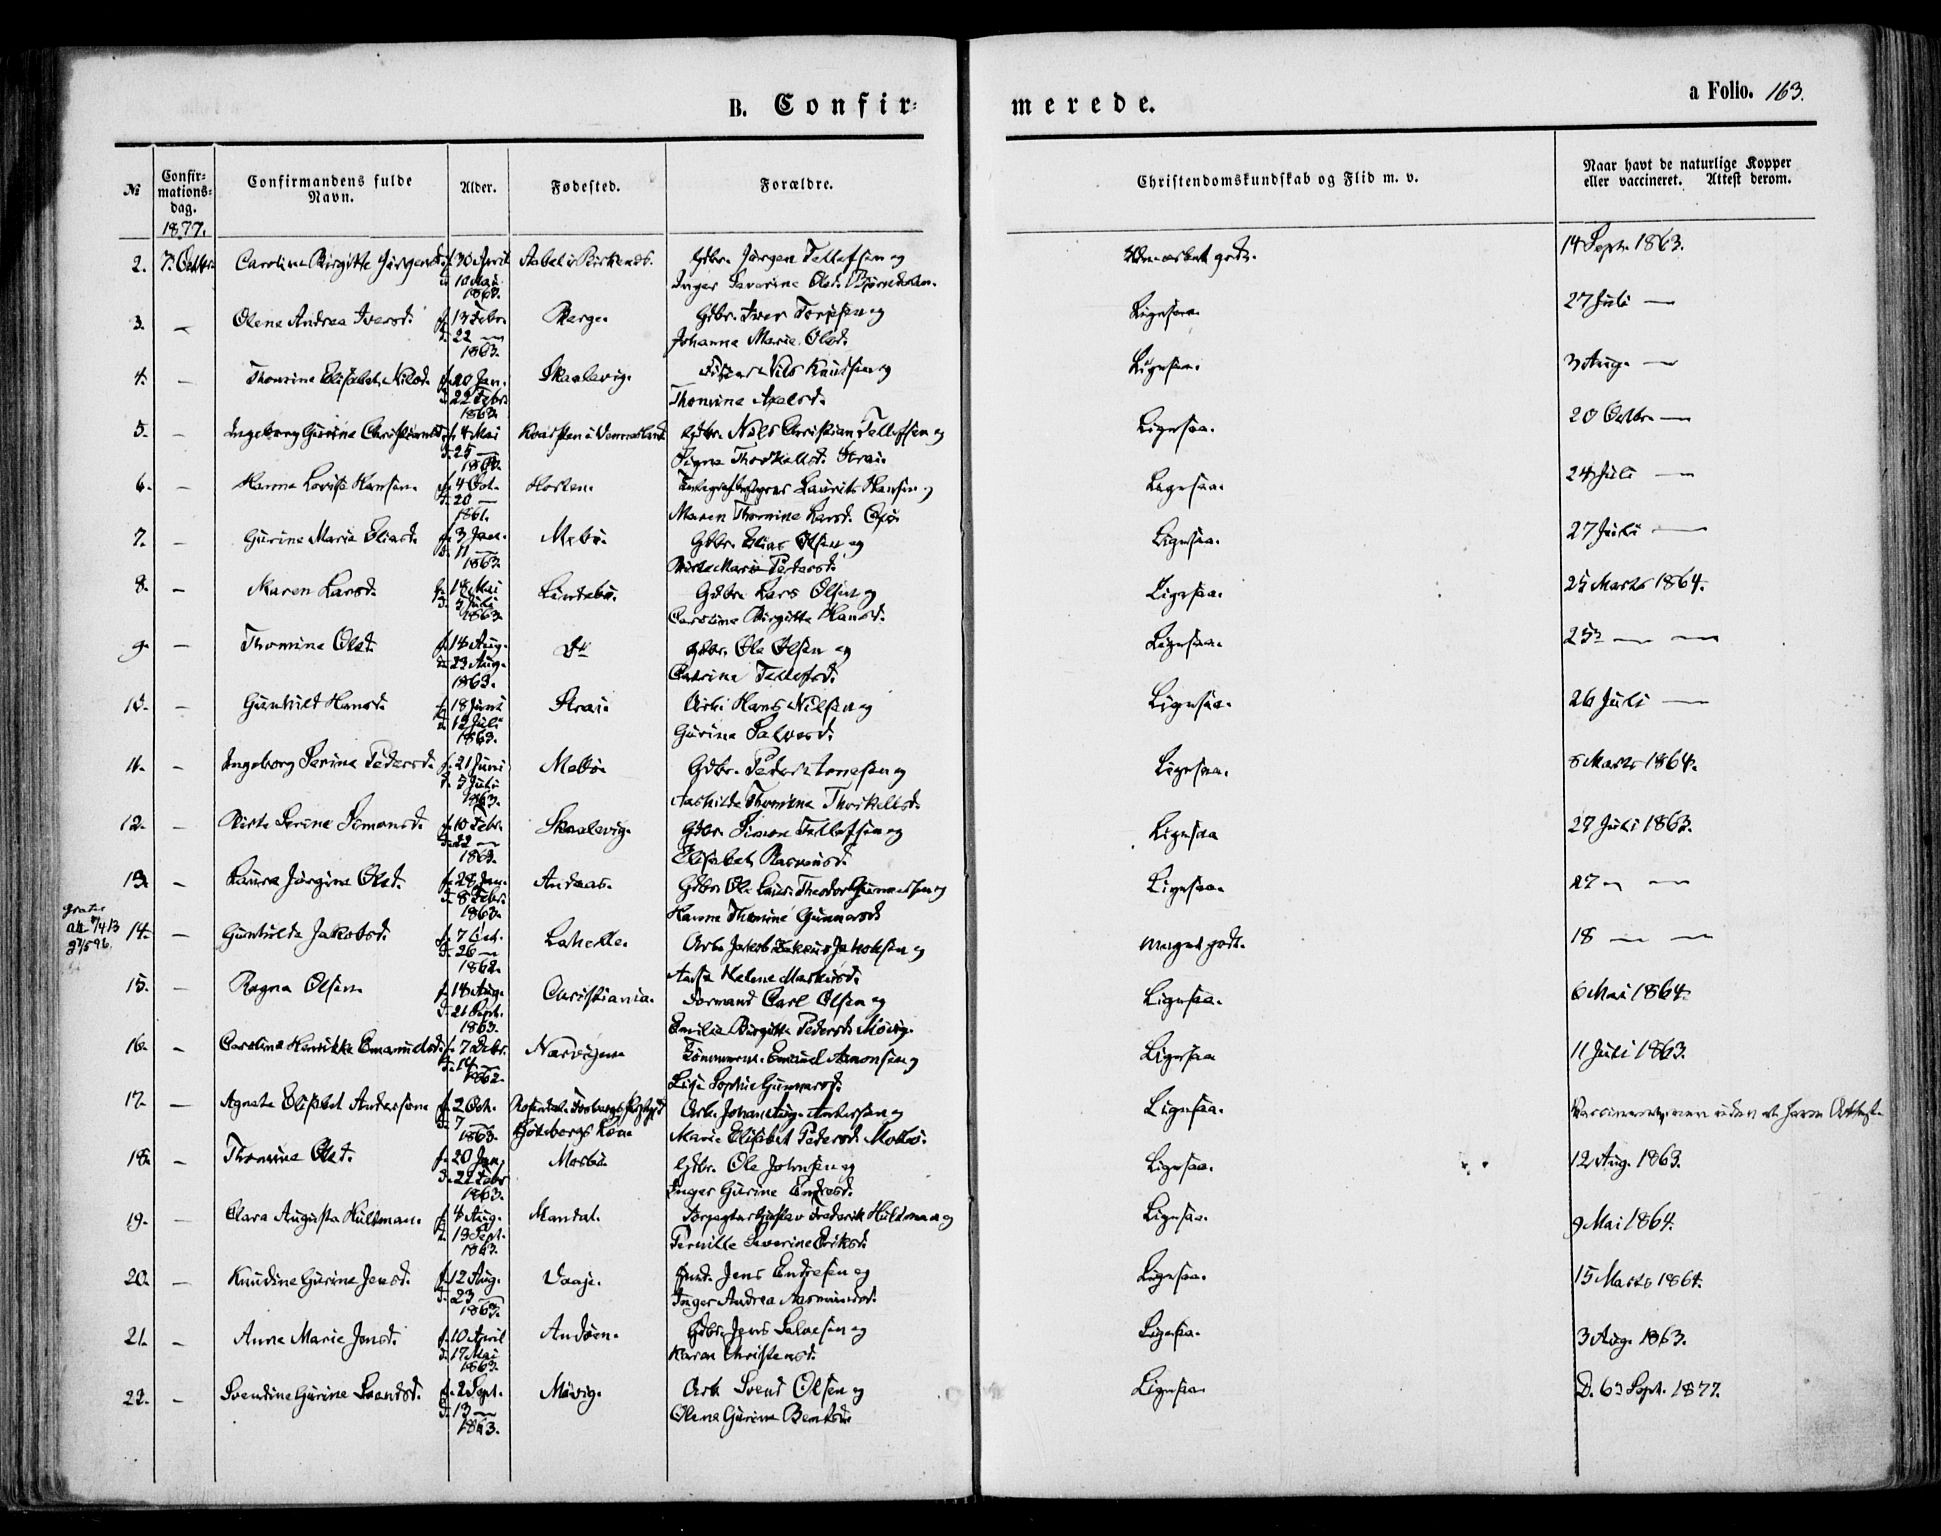 B. Confir-
merede.
a Folio. 163.
№
Confir-
mations-
dag.
1877.
Confirmandens fulde
Navn.
Alder.
Fødested.
Forældre.
Christendomskundskab og Flid m. v.
Naar havt de naturlige Kopper
eller vaccineret. Attest derom.
2. 7. Octbr. Caroline Birgitte f. 30 April Gdbr. Jørgen Tellefsen og godt. 14 Sept. 1863.
10 Mai Inger Severine Olsd.
1863.
3. — Olene Andrea Iversd. f. 13 Febr. Berge. Gdbr. Iver og Ligesaa. 27 Juli —
d. 22 — Johanna Marie Olsd.
1863.
4. — Thomine Elisabeth Nilsd. f. 20 Jan. Skaalevig. Nils Knudsen og Ligesaa. 3 Aug. —
d. 22 Febr. Thomine Axelsd.
1863.
5. — Ingeborg Gurine Christiansd. f. 4 Mai i Vennesland Gdbr. Nils Christian Tellefsen og Ligesaa. 20 Octbr. —
d. 25 — Signe Thorkelsd. Strai.
1863.
6. — Hanna Lovise Hansen. f. 4 Oct. Horten. Laurits Hansen og Ligesaa. 24 Juli —
d. 20 — Maren Thomine Larsd.
1861.
7. — Gurine Marie Eliasd. f. 3 Jan. Mebø. Gdbr. Elias Olsen og Ligesaa. 27 Juli —
d. 11 — Birte Marie Pedersd.
1863.
8. — Maren Larsd. f. 18 Mai Lindebø. Gdbr. Lars Olsen og Ligesaa. 25 Marts 1864.
d. 5 Juli Caroline Birgitte Hansd.
1863.
9. — Thomine Olsd. f. 14 Aug. Do Gdbr. Ole Olsen og Ligesaa. 25 — —
d. 23 Aug. Catrine Tellefsd.
1863.
10. — Gunhild Hansd. f. 18 Juni Strai. Arb. Hans Nilsen og Ligesaa. 26 Juli —
d. 12 Juli Gurine Salvesd.
1863.
11. — Ingeborg Serine Pedersd. f. 21 Juni Mebø. Gdbr. Peder og Ligesaa. 8 Marts 1864.
d. 5 Juli Aashilde Thomine Thorkelsd.
1863.
12. — Birte Serine Simonsd. f. 10 Febr. Skaalevig. Gdbr. Simon Tellefsen og Ligesaa 27 Juli 1863.
d. 22 — Elisabeth Rasmusd.
1863.
13. — Laura Jørgine Olsd. f. 28 Jan. Andaas. Gdbr. Ole Theodor Gunnarsen og Ligesaa. 27 — —
d. 8 Febr. Hanne Thomine Gunnarsd.
1863.
14. — Gunhilde Jakobsd. f. 7 Oct. Lahelle. Arb. Jakob Jakobsen og meget godt. 18 — —
d. 26 — Helene Markusd.
1862.
15. — Ragna Olsen. f. 18 Aug. Christiania. Formand Carl Olsen og Ligesaa. 6 Mai 1864.
d. 21 Sept. Emilie Birgitte Pedersd. Møvig.
1863.
16. — Caroline Henrikke Emanuelsd. f. 7 Decbr. Narvigen Emanuel Aanonsen og Ligesaa 11 Juli 1863.
d. 14 — Lise Sophie Gunnarsd.
1862.
17. — Agnete Elisabet Andersson f. 2 Oct. Arb. Johan Aug. Andersson og Ligesaa. uden at have Attest.
d. 7 — Gøteborgs Læn Marie Elisabet Pedersd.
1863.
18. — Thomine Olsd. f. 20 Jan. Mosbø. Gdbr. Ole Johnsen og Ligesaa. 12 Aug. 1863.
d. 22 Febr. Inger Gurine Endresd.
1863.
19. — Clara Augusta Hultman. f. 4 Aug. Mandal. Forpagter Gustav Frederik Hultman og Ligesaa. 9 Mai 1864.
d. 13 Sept. Pernille Severine Eriksd.
1863.
20. — Knudine Gurine Jensd. f. 12 Aug. Vaaje. Jens Endresen og Ligesaa. 15 Marts 1864.
d. 23 — Inger Andrea Aasmundsd.
1863.
21. — Anne Marie Jensd. f. 10 April Andøen. Gdbr. Jens Salvesen og Ligesaa. 3 Aug. 1863.
d. 17 Mai Karen Christensd.
1863.
22. — Svendine Gurine Svendsd. f. 2 Sept. Møvig. Arb. Svend Olsen og Ligesaa Sept. 1877.
d. 13 — Olene Gurine Bentsd.
1863.